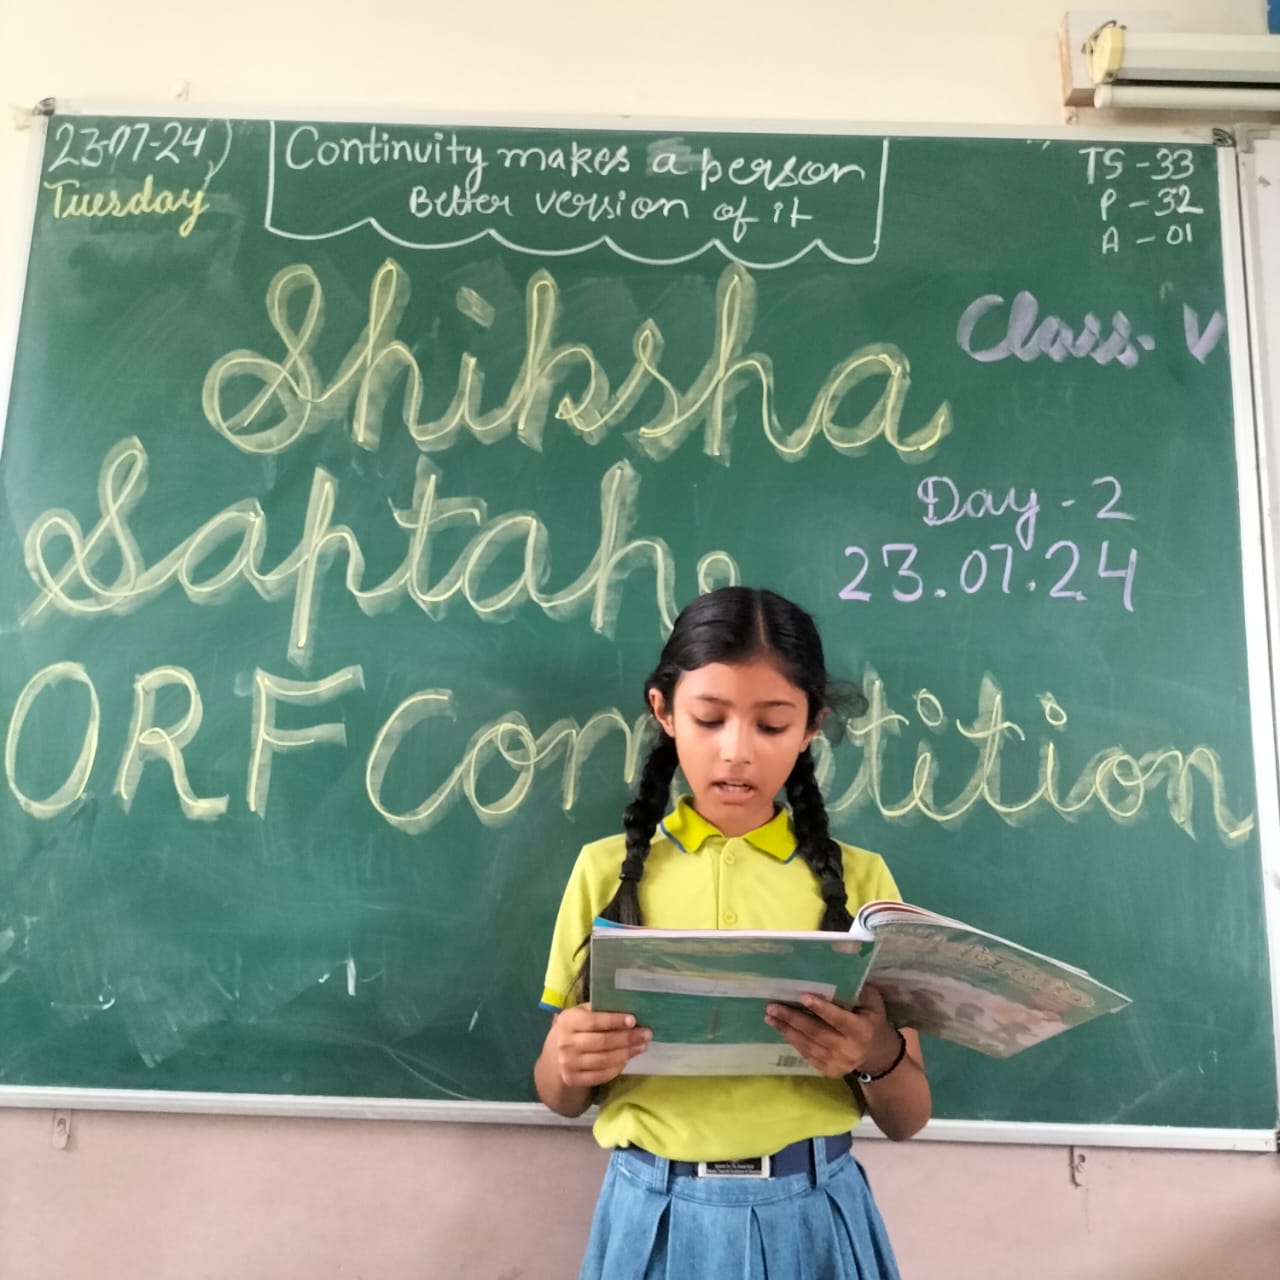 23-07-24
Tuesday
Continuity makes a person
Better version of it
TS - 33
P - 32
A - 01
Class - V
Shiksha
Saptah
Day - 2
23.07.24
ORF Competition